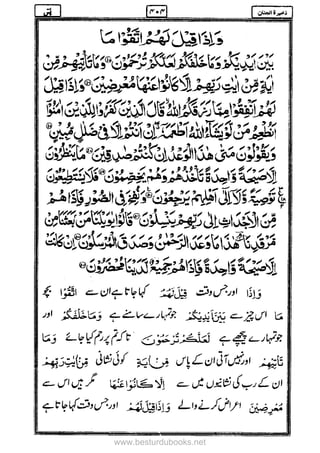 ذخيرة الجنان
٤٠٣
يٰسٓ
وَاِذَا قِيْلَ لَهُمُ اتَّقُوْا مَا
بَيْنَ اَيْدِيْكُمْ وَمَا خَلْفَكُمْ لَعَلَّكُمْ تُرْحَمُوْنَ وَمَا تَاْتِيْهِمْ مِّنْ
اٰيَةٍ مِّنْ اٰيٰتِ رَبِّهِمْ اِلَّا كَانُوْا عَنْهَا مُعْرِضِيْنَ وَاِذَا قِيْلَ
لَهُمْ اَنْفِقُوْا مِمَّا رَزَقَكُمُ اللّٰهُ قَالَ الَّذِيْنَ كَفَرُوْا لِلَّذِيْنَ اٰمَنُوْٓا
اَنُطْعِمُ مَنْ لَّوْ يَشَآءُ اللّٰهُ اَطْعَمَهٗٓ اِنْ اَنْتُمْ اِلَّا فِيْ ضَلٰلٍ مُّبِيْنٍ
وَيَقُوْلُوْنَ مَتٰى هٰذَا الْوَعْدُ اِنْ كُنْتُمْ صٰدِقِيْنَ مَا يَنْظُرُوْنَ
اِلَّا صَيْحَةً وَّاحِدَةً تَاْخُذُهُمْ وَهُمْ يَخِصِّمُوْنَ فَلَا يَسْتَطِيْعُوْنَ
تَوْصِيَةً وَّلَآ اِلٰٓى اَهْلِهِمْ يَرْجِعُوْنَ وَنُفِخَ فِي الصُّوْرِ فَاِذَا هُمْ
مِّنَ الْاَجْدَاثِ اِلٰى رَبِّهِمْ يَنْسِلُوْنَ قَالُوْا يٰوَيْلَنَا مَنْۢ بَعَثَنَا مِنْ
مَّرْقَدِنَا هٰذَا مَا وَعَدَ الرَّحْمٰنُ وَصَدَقَ الْمُرْسَلُوْنَ اِنْ كَانَتْ
اِلَّا صَيْحَةً وَّاحِدَةً فَاِذَا هُمْ جَمِيْعٌ لَّدَيْنَا مُحْضَرُوْنَ
وَاِذَا اور جس وقت قِيْلَ لَهُمُ کہا جاتا ہے ان سے اتَّقُوْا بچو
مَا اس چیز سے بَيْنَ اَيْدِيْكُمْ جو تمہارے سامنے ہے وَمَا خَلْفَكُمْ اور
جو تمہارے پیچھے ہے لَعَلَّكُمْ تُرْحَمُوْنَ تاکہ تم پر رحم کیا جائے وَمَا
تَاْتِيْهِمْ اور نہیں آتی ان کے پاس مِّنْ اٰيَةٍ کوئی نشانی مِّنْ اٰيٰتِ رَبِّهِمْ
ان کے رب کی نشانیوں میں سے اِلَّا كَانُوْا عَنْهَا مگر ہیں اس سے
مُعْرِضِيْنَ اعراض کرنے والے وَاِذَا قِيْلَ لَهُمْ اور جس وقت کہا جاتا ہے
www.besturdubooks.net